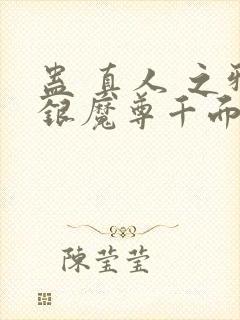 蛊真人之邪
银魔尊千而
陳莹莹